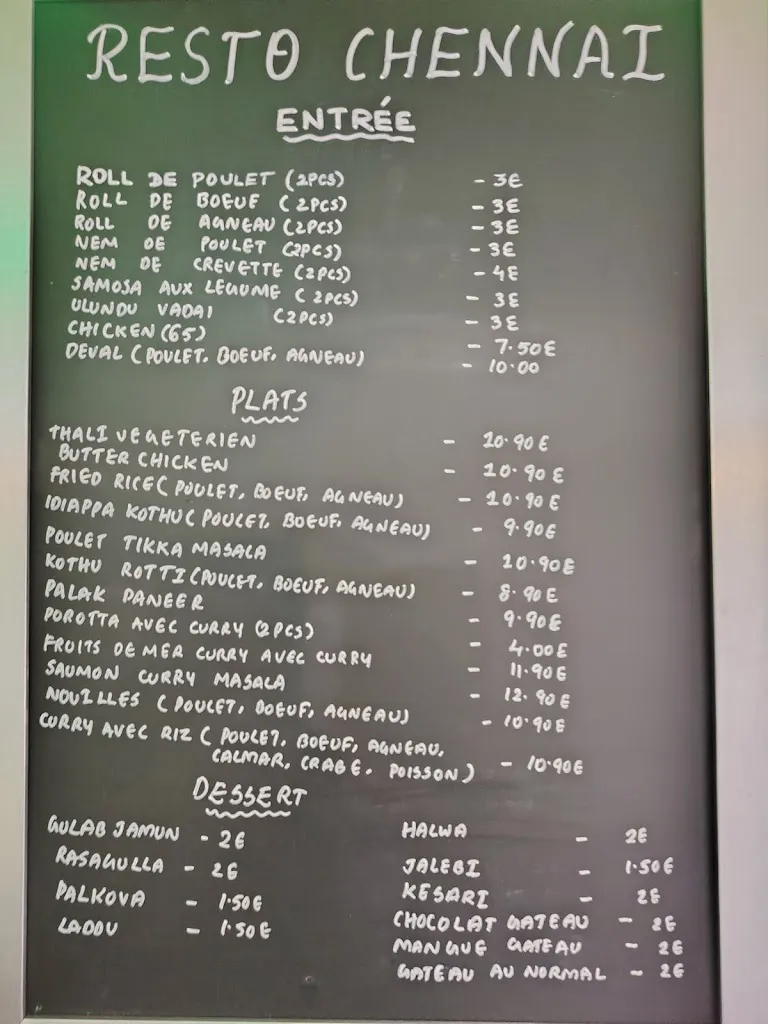 RESTO CHENNAI
ENTRÉE
ROLL DE POULET (2PCS) - 3€
ROLL DE BOEUF (2PCS) - 3€
ROLL DE AGNEAU (2PCS) - 3€
NEM DE POULET (2PCS) - 3€
NEM DE CREVETTE (2PCS) - 4€
SAMOSA AUX LEGUME (2PCS) - 3€
ULUNDU VADAI (2PCS) - 3€
CHICKEN (65) - 7.50€
DEVAL (POULET, BOEUF, AGNEAU) - 10.00
PLATS
THALI VEGETERIEN - 10.90€
BUTTER CHICKEN - 10.90€
FRIED RICE (POULET, BOEUF, AGNEAU) - 10.90€
IDIAPPA KOTHU (POULET, BOEUF, AGNEAU) - 9.90€
POULET TIKKA MASALA - 10.90€
KOTHU ROTTI (POULET, BOEUF, AGNEAU) - 8.90€
PALAK PANEER - 9.90€
POROTTA AVEC CURRY (2PCS) - 4.00€
FRUITS DE MER CURRY AVEC CURRY - 11.90€
SAUMON CURRY MASALA - 12.90€
NOUILLES (POULET, BOEUF, AGNEAU) - 10.90€
CURRY AVEC RIZ (POULET, BOEUF, AGNEAU,
CALMAR, CRABE, POISSON) - 10.90€
DESSERT
GULAB JAMUN - 2€
RASAGULLA - 2€
PALKOVA - 1.50€
LADDU - 1.50€
HALWA - 2€
JALEBI - 1.50€
KESARI - 2€
CHOCOLAT GATEAU - 2€
MANGUE GATEAU - 2€
GATEAU AU NORMAL - 2€